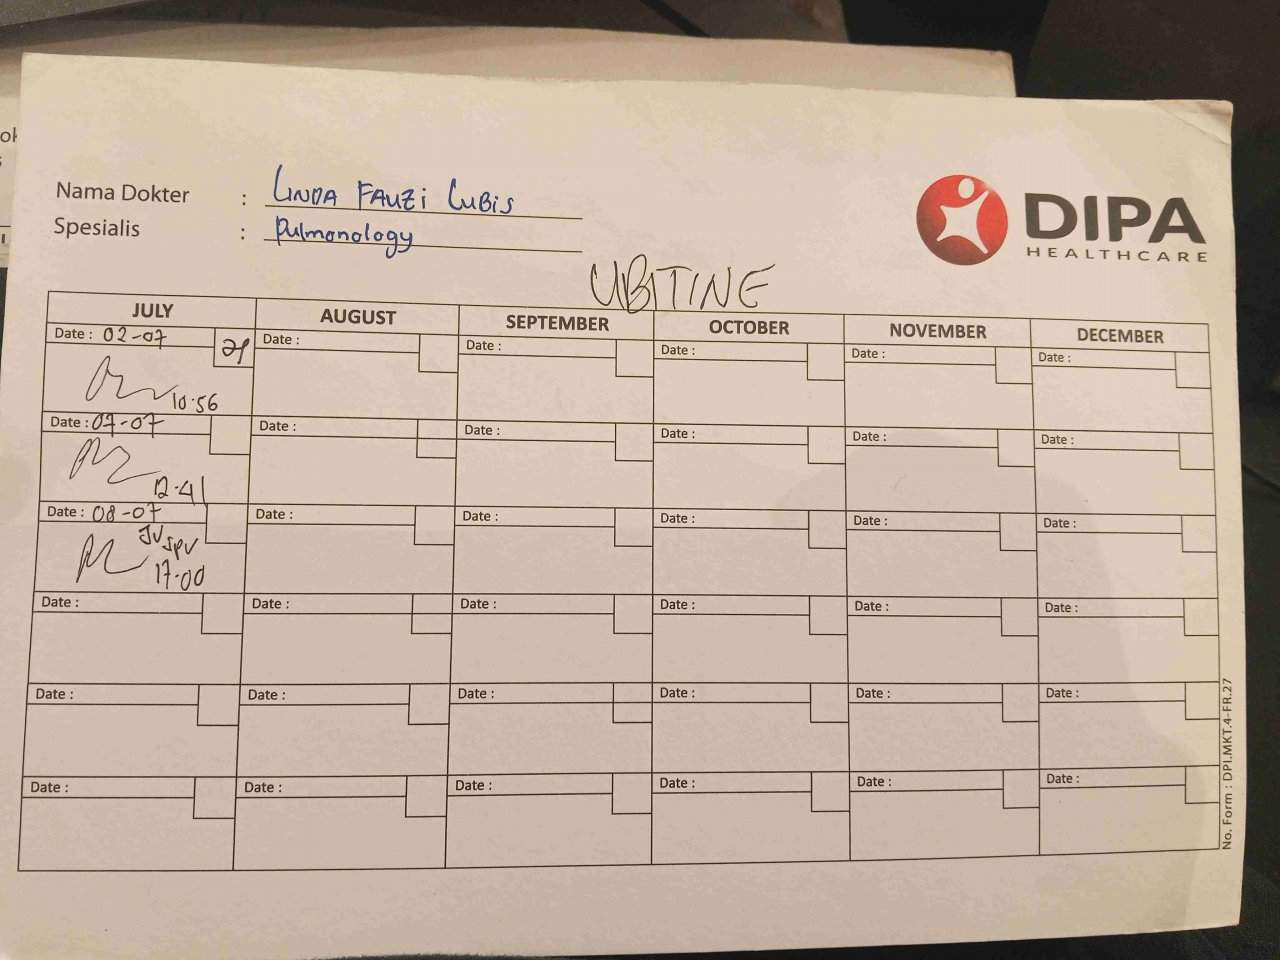 Nama Dokter : LINDA FAUZI LUBIS
Spesialis : Pulmonology
DIPA
HEALTHCARE
UBITINE
JULY AUGUST SEPTEMBER OCTOBER NOVEMBER DECEMBER
Date : 02-07 Date : Date : Date : Date : Date :
10.56
Date : 07-07 Date : Date : Date : Date : Date :
12.41
Date : 08-07 Date : Date : Date : Date : Date :
JV SPV
17.00
Date : Date : Date : Date : Date : Date :
Date : Date : Date : Date : Date : Date :
Date : Date : Date : Date : Date : Date :
No. Form : DPI.MKT.4-FR.27